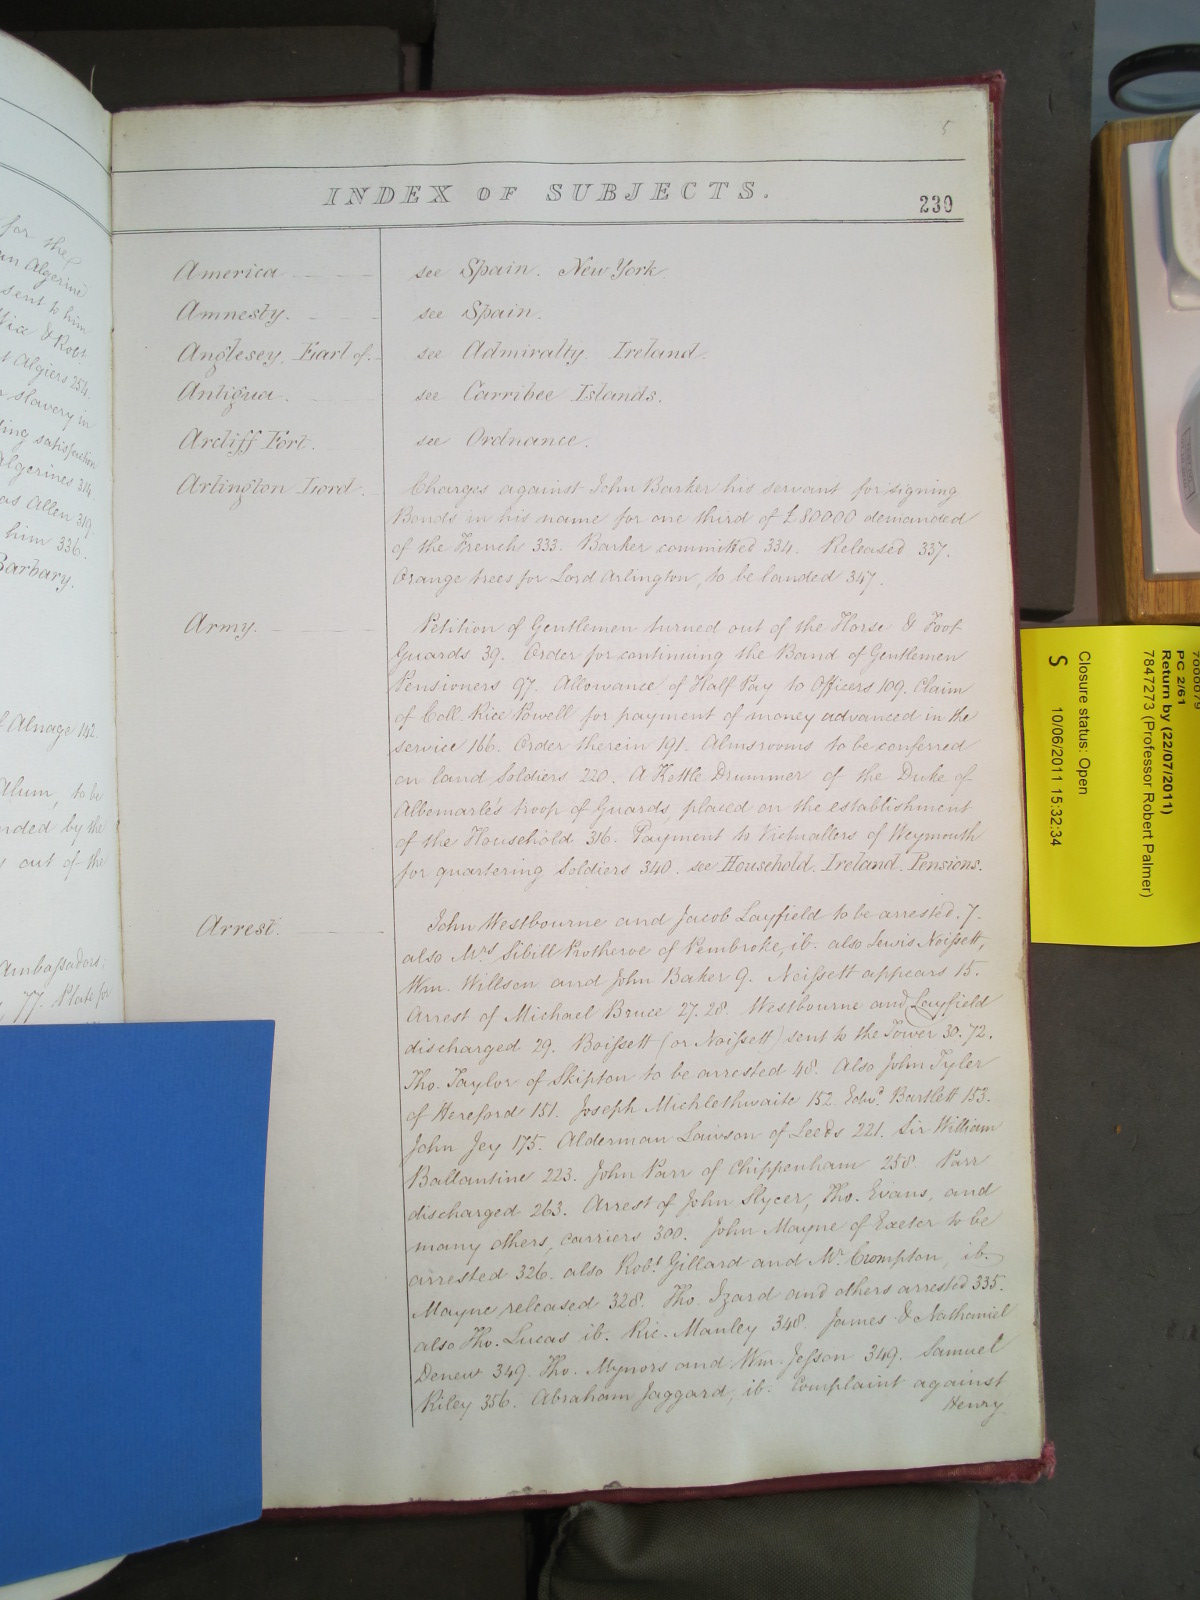 5
INDEX OF SUBJECTS.
230
America
see Spain. New York.
Amnesty.
see Spain.
Anglesey, Earl of.
see Admiralty. Ireland.
Antigua.
see Carribee Islands.
Arcliff Fort.
see Ordnance.
Arlington Lord.
Charges against John Barker his servant for signing
Bonds in his name for one third of £80000 demanded
of the French 333. Barker committed 334. Released 337.
Orange trees for Lord Arlington, to be landed 347.
Army.
Petition of Gentlemen turned out of the Horse & Foot
Guards 39. Order for continuing the Band of Gentlemen
Pensioners 97. Allowance of Half Pay to Officers 109. Claim
of Coll. Rice Powell for payment of money advanced in the
service 166. Order therein 191. Almsrooms to be conferred
on land Soldiers 220. A Kettle Drummer of the Duke of
Albemarle's troop of Guards, placed on the establishment
of the Household 316. Payment to Victuallers of Weymouth
for quartering Soldiers 340. see Household. Ireland. Pensions.
Arrest.
John Westbourne and Jacob Layfield to be arrested. 7.
also Mrs Sibill Protheroe of Pembroke, ib. also Lewis Noissett,
Wm. Willson and John Baker 9. Noissett appears 15.
Arrest of Michael Bruce 27. 28. Westbourne and Layfield
discharged 29. Boissett (or Noissett) sent to the Tower 30. 72.
Tho. Taylor of Skipton to be arrested 48. Also John Tyler
of Hereford 151. Joseph Michlethwaite 152. Edwd. Bartlett 153.
John Jey 175. Alderman Lawson of Leeds 221. Sir William
Ballantine 223. John Parr of Chippenham 258. Parr
discharged 263. Arrest of John Slycer, Tho. Evans, and
many others, carriers 300. John Mayne of Exeter to be
arrested 326. also Robt. Gillard and Mr. Crompton, ib.
Mayne released 328. Tho. Izard and others arrested 335.
also Tho. Lucas ib. Ric. Manley 348. James & Nathaniel
Denew 349. Tho. Mynors and Wm. Jesson 349. Samuel
Riley 356. Abraham Jaggard, ib. Complaint against
Henry
for the
an Algerine
sent to him
& Robt
t Algiers 254.
slavery in
ing satisfaction
Algerines 314.
as Allen 319.
him 336.
Barbary.
f Alnage 142.
Alum, to be
nded by the
s out of the
Ambassadors;
77. Plate for
PC 2/61
Return by (22/07/2011)
7847273 (Professor Robert Palmer)
Closure status: Open
S 10/06/2011 15:32:34